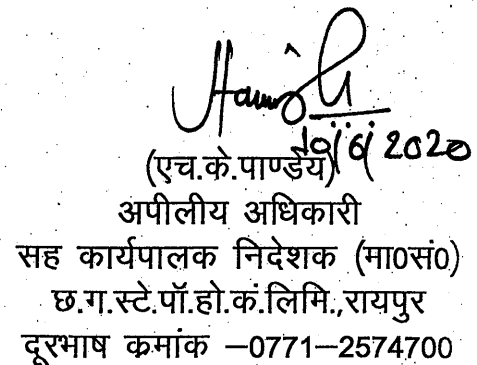 10/6/2020
(एच.के.पाण्डेय)
अपीलीय अधिकारी
सह कार्यपालक निदेशक (मा0सं0)
छ.ग.स्टे.पॉ.हो.कं.लिमि.,रायपुर
दूरभाष कमांक –0771–2574700